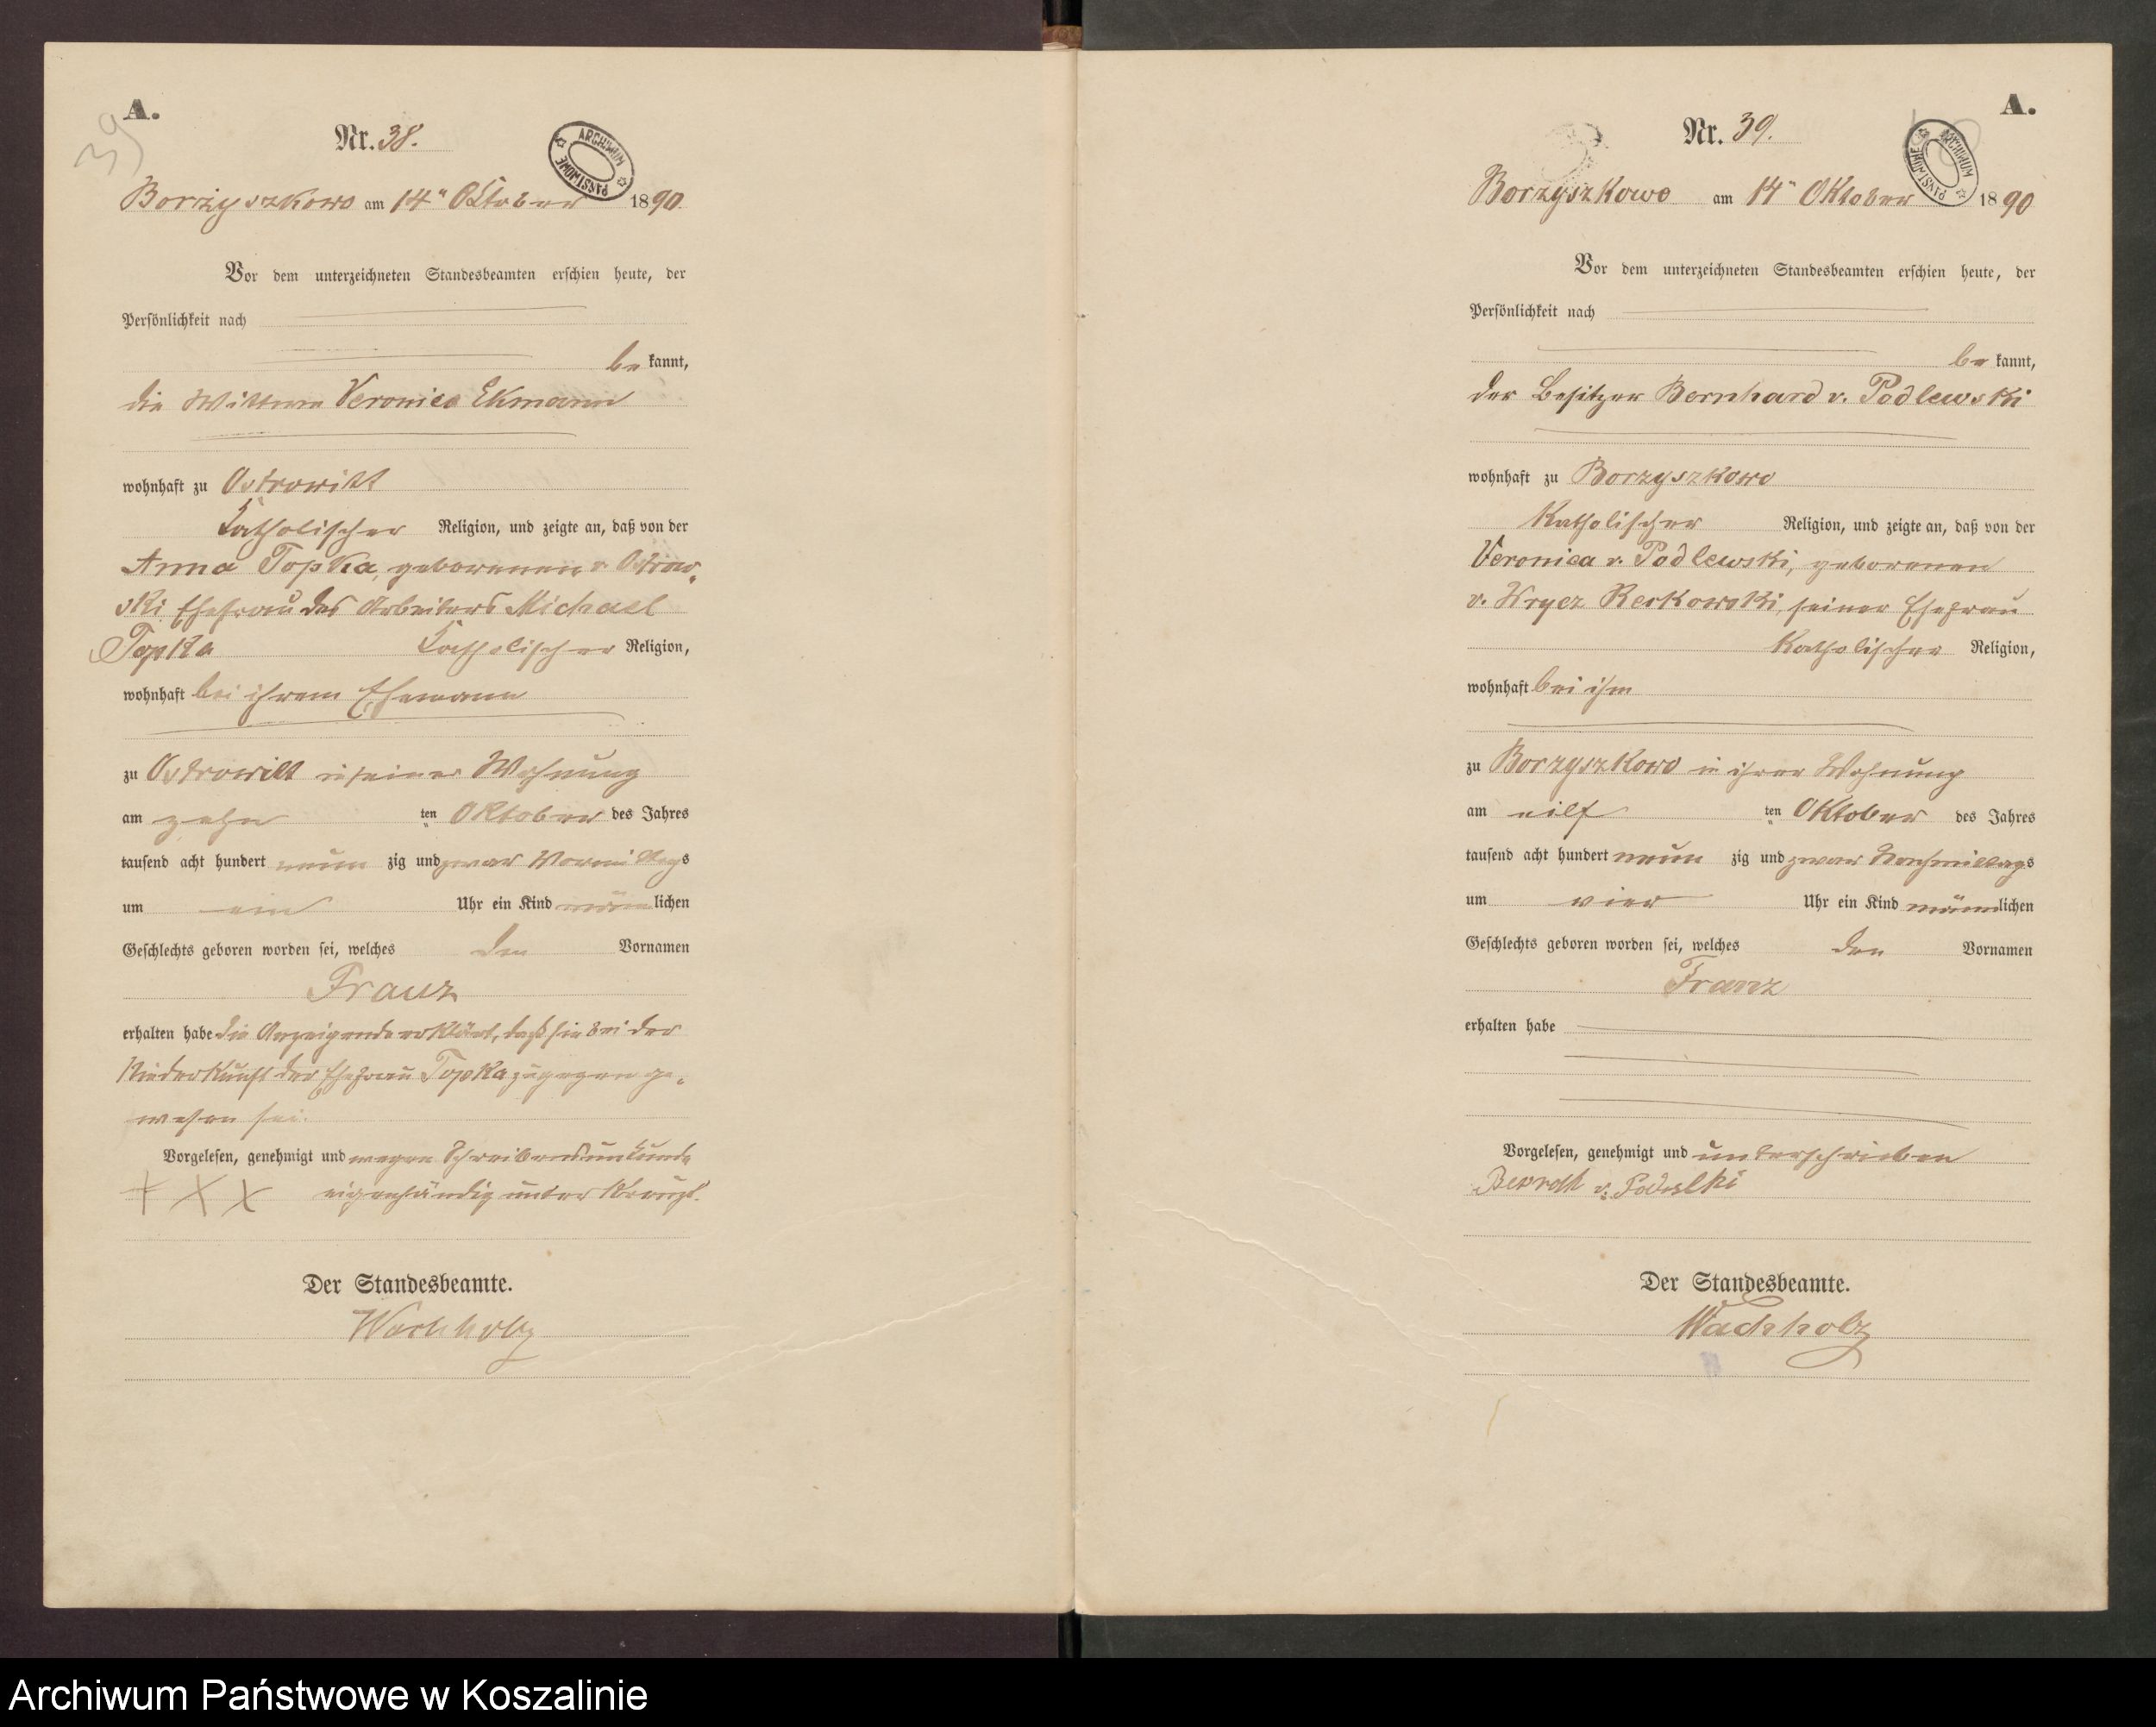 A.
39
Nr. 38.
ARCHIWUM PAŃSTWOWE
Borzyszkowo am 14" Oktober 1890.
Vor dem unterzeichneten Standesbeamten erschien heute, der
Persönlichkeit nach
be kannt,
die Wittwe Veronica Ekmann
wohnhaft zu Ostrowitt
katholischer Religion, und zeigte an, daß von der
Anna Topka, geborenen v. Ostrow-
ski Ehefrau des Arbeiters Michael
Topka katholischer Religion,
wohnhaft bei ihrem Ehemann
zu Ostrowitt in seiner Wohnung
am zehn ten Oktober des Jahres
tausend acht hundert neun zig und zwar Vormittags
um ein Uhr ein Kind männlichen
Geschlechts geboren worden sei, welches den Vornamen
Franz
erhalten habe die Anzeigende erklärt, daß sie bei der
Niederkunft der Ehefrau Topka zugegen ge-
wesen sei.
Vorgelesen, genehmigt und wegen Schreibensunkunde
+ X X eigenhändig unterkreuzt.
Der Standesbeamte.
Wachholz
A.
Nr. 39.
ARCHIWUM PAŃSTWOWE
Borzyszkowo am 14" Oktober 1890
Vor dem unterzeichneten Standesbeamten erschien heute, der
Persönlichkeit nach
be kannt,
der Besitzer Bernhard v. Podlewski
wohnhaft zu Borzyszkowo
katholischer Religion, und zeigte an, daß von der
Veronica v. Podlewski, geborenen
v. Wrycz Rekowski, seiner Ehefrau
katholischer Religion,
wohnhaft bei ihm
zu Borzyszkowo in ihrer Wohnung
am eilf ten Oktober des Jahres
tausend acht hundert neun zig und zwar Nachmittags
um vier Uhr ein Kind männlichen
Geschlechts geboren worden sei, welches den Vornamen
Franz
erhalten habe
Vorgelesen, genehmigt und unterschrieben
v.
Der Standesbeamte.
Wachholz
Archiwum Państwowe w Koszalinie